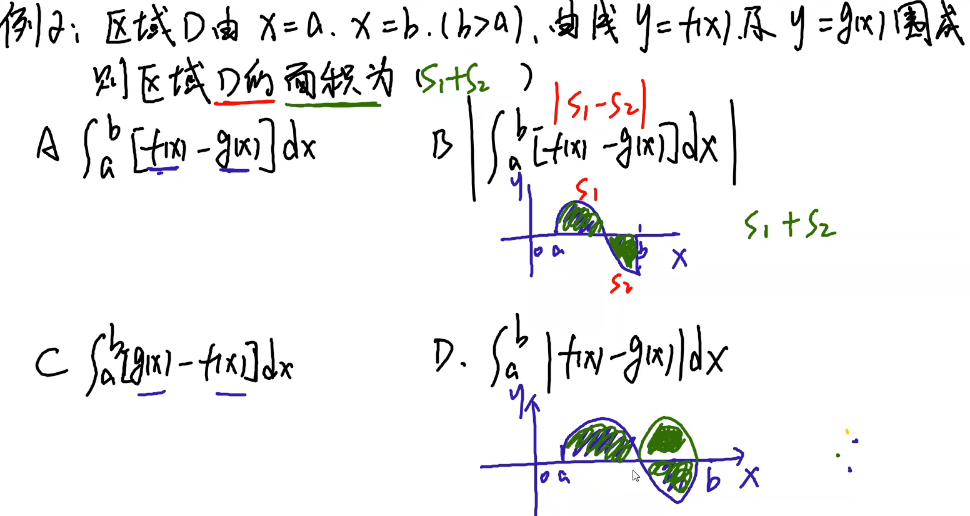 例2: 区域D由 x=a. x=b.(b>a), 曲线 y=f(x).及 y=g(x)围成
则区域D的面积为 (S₁+S₂ )
|S₁-S₂|
A ∫ₐᵇ [f(x)-g(x)]dx
B |∫ₐᵇ [f(x)-g(x)]dx|
y
S₁
S₁+S₂
0 a b x
S₂
C ∫ₐᵇ[g(x)-f(x)]dx
D. ∫ₐᵇ |f(x)-g(x)|dx
y
0 a b x